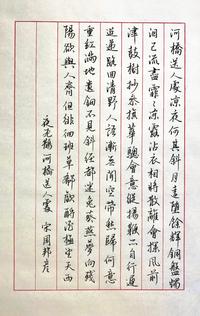 河橋送人處涼夜何其斜月遠墮餘輝銅盤燭
淚已流盡霏霏涼露沾衣相將散離會探風前
津鼓樹杪參旗華驄會意縱揚鞭亦自行遲
迢遞路回清野人語漸無聞空帶愁歸何意
重紅滿地遺鈿不見斜徑都迷兔葵燕麥向殘
陽欲與人齊但徘徊班草欷歔酹酒極望天西
夜飛鵲 河橋送人處 宋周邦彥